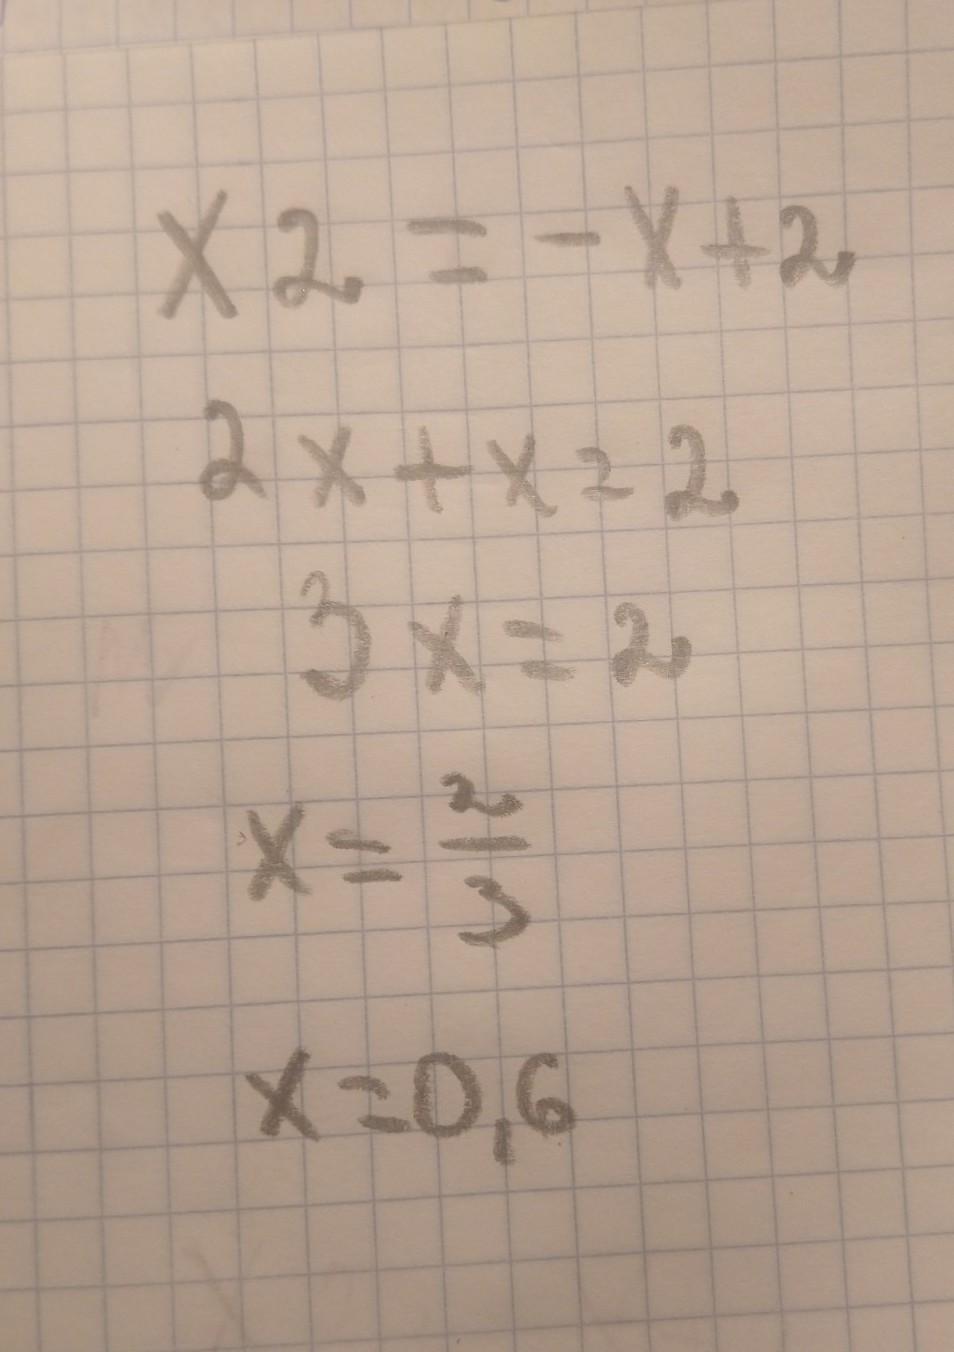 x 2 = -x+2
2x+x=2
3x=2
x=2/3
x=0,6